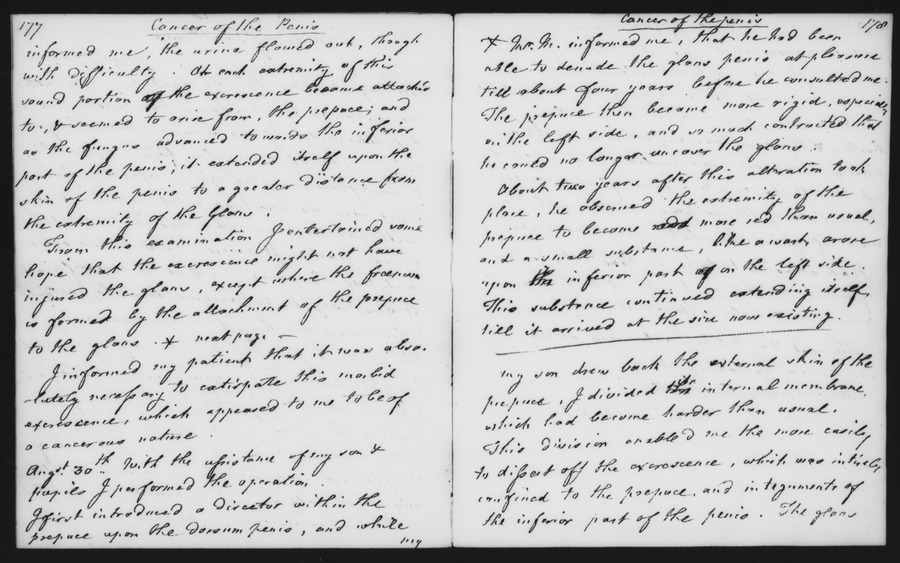 177 Cancer of the Penis
informed me, the urine flowed out, though
with difficulty. At each extremity of this
round portion of the excrescence became attach'd
to, & seemed to arise from, the prepuce; and
as the fungus advanced towards the inferior
part of the penis, it extended itself upon the
skin of the penis to a greater distance from
the extremity of the Glans.
From this examination I entertained some
hope that the excrescence might not have
injured the glans, except where the froenum
is formed by the attachment of the prepuce
to the glans. * next page —
I informed my patient that it was abso-
-lutely necessary to extirpate this morbid
excrescence, which appeared to me to be of
a cancerous nature.
Augst. 30th With the assistance of my son &
pupils I performed the operation.
I first introduced a director within the
prepuce upon the dorsum penis, and while
my
Cancer of the penis 178
* Mr. M. informed me, that he had been
able to denude the glans penis at pleasure
till about four years before he consulted me.
The prepuce then became more rigid, especially
on the left side, and so much contracted that
he could no longer uncover the glans.
About two years after this alteration took
place, he observed the extremity of the
prepuce to become more red than usual,
and a small substance, like a wart, arose
upon the inferior part of on the left side.
This substance continued extending itself,
till it arrived at the size now existing.
my son drew back the external skin of the
prepuce, I divided the internal membrane,
which had become harder than usual.
This division enabled me the more easily
to dissect off the excrescence, which was intirely
confined to the prepuce and integuments of
the inferior part of the penis. The glans